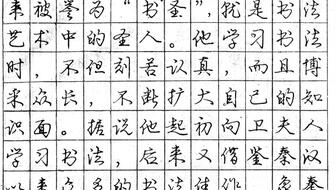 来被誉为“书圣”，就是书法
艺术中的圣人。他学习书法
时，不但刻苦认真，而且博
采众长，不断扩大自己的知
识面。据说他起初向卫夫人
学习书法，后来又借鉴秦汉
以来众多的书法佳作，